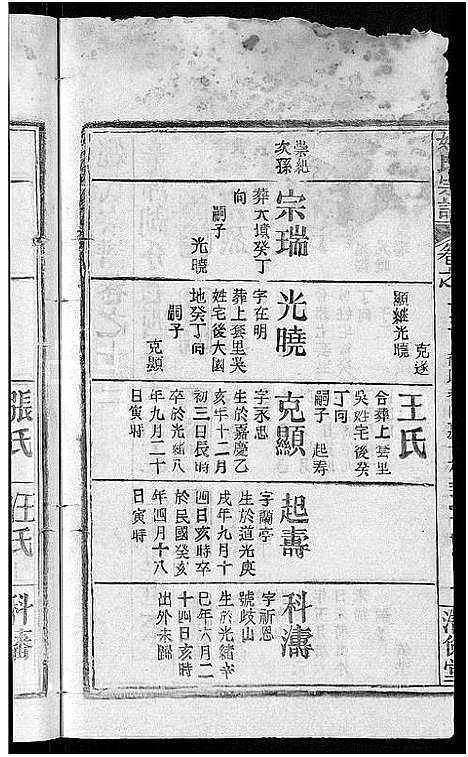 崇紀
次孫
宗瑞
葬大墳癸丁
向
嗣子
光曉
克遂
顯繼光曉
光曉
字在明
葬上套里吴
姓宅後大園
地癸丁向
嗣子
克顯
王氏
合葬上套里
吴姓宅後癸
丁向
嗣子 起寿
克顯
字永思
生於嘉慶乙
亥年十二月
初三日長時
卒於光緒八
年九月二十
日寅時
起壽
字蘭亭
生於道光庚
戌年九月十
四日亥時卒
於民國癸亥
年四月十八
日寅時
科濤
字祈恩
號歧山
生於光緒辛
巳年六月二
十四日亥時
出外未歸
張氏
汪氏
科